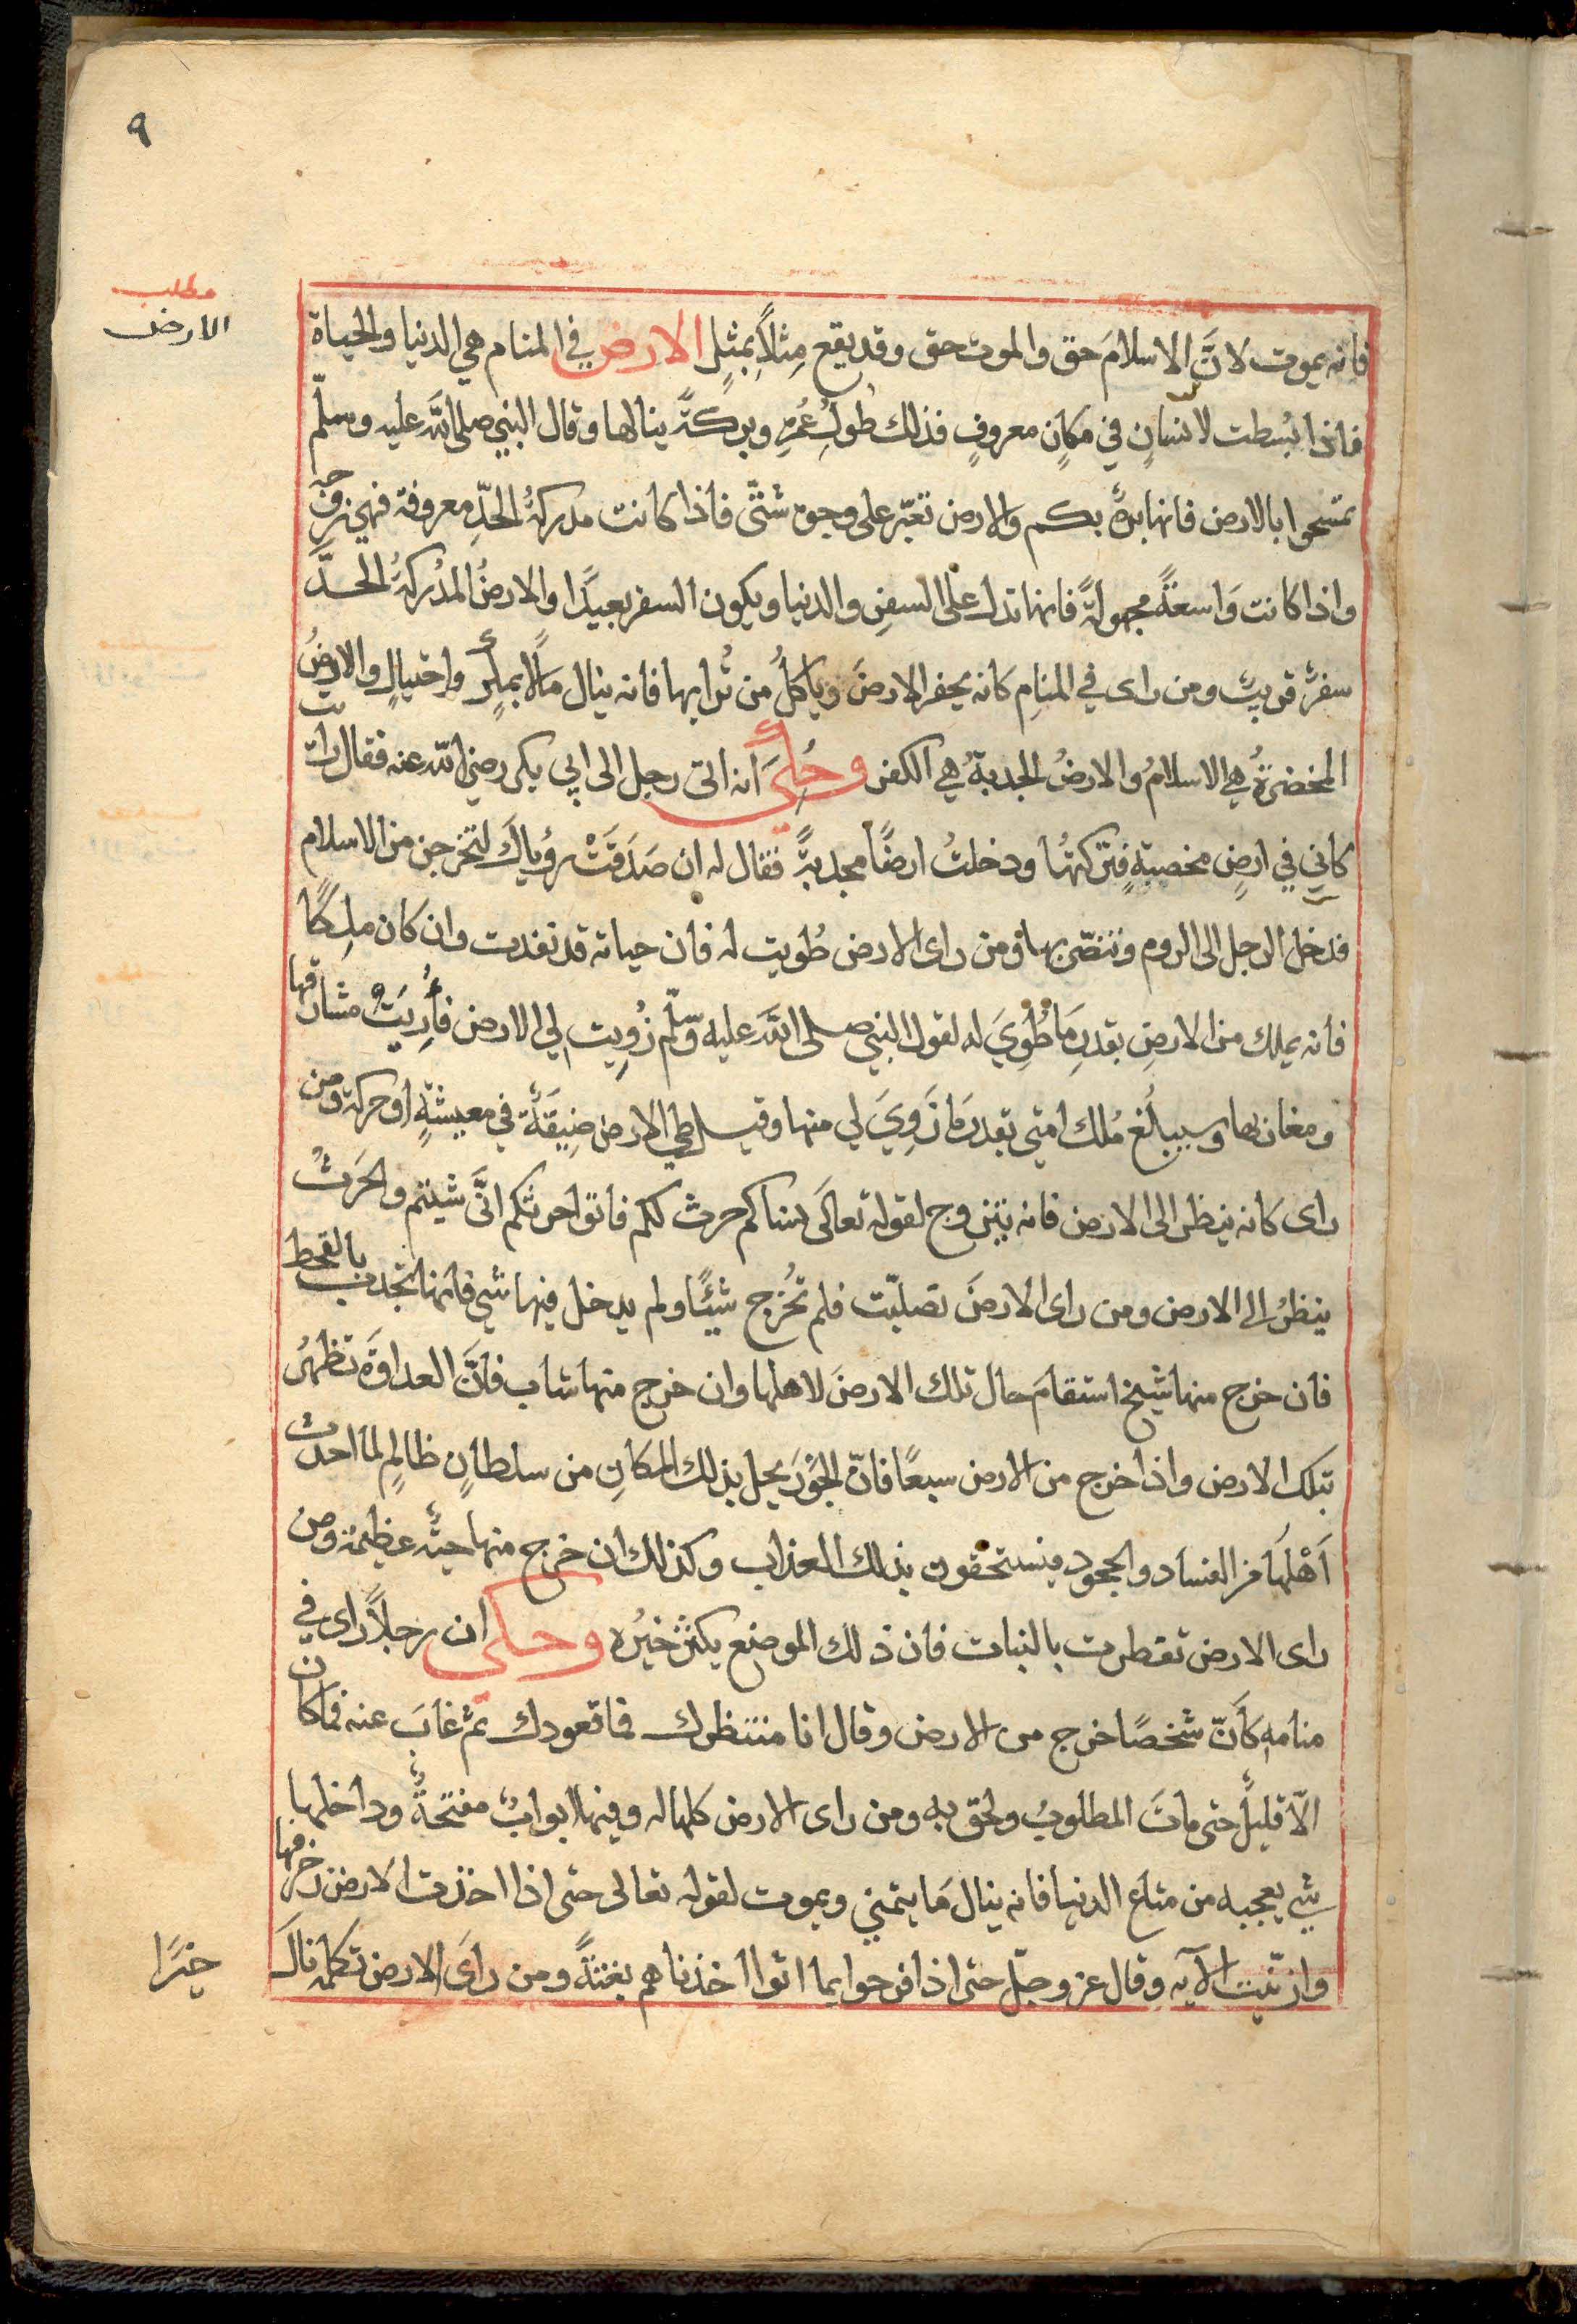 ٩
مطلب
الارض
فانه يموت لانَّ الاسلامَ حق والموت حق وقد يقع مِثلاً بمثلٍ الارض في المنام هي الدنيا والحياة
فاذا بُسطت لانسانٍ في مكانٍ معروفٍ فذلك طولُ عُمُرِهِ وبركةً ينالها وقال النبي صلى الله عليه وسلّم
تمسّحوا بالارض فانها برةٌ بكم والارض تعبّر على وجوه شتَّى فاذا كانت مدركةُ الحدِّ معروفة فهي زوجه
واذا كانت وَاسعةً مجهولةً فانها تدل على السفرِ والدنيا ويكون السفر بعيدًا والارضُ المدْركةُ الحدّ
سفرٌ قريبٌ ومن راى في المنامِ كانه يحفر الارضَ وياكلُ من تُرابها فانه ينال مَالاً بمكرٍ واحتيالٍ والارضُ
المخضرّةُ هي الاسلامُ والارضُ الجدبةُ هي الكفر وحُكِيَ انه اتى رجل الى ابي بكر رضي الله عنه فقال رايت
كاني في ارضٍ مخصبةٍ فتركتهُا ودخلتُ ارضًا مجدبةً فقال له ان صَدَقَتْ رؤياكَ لتخرجن من الاسلام
فدخل الرجل الى الروم وتنصّر بها ومن راى الارض طُويت له فان حياته قد نفدت وان كان ملِكًا
فانه يملك من الارضِ بقدرِ مَا طُوِيَ له لقول النبي صلى الله عليه وسلّم زُوِيت لي الارض فأُرِيتُ مشارقها
ومغاربها وسيبلُغ مُلك امتي بقدر مَا زُوِيَ لي منها وقيل طي الارض ضِيقَةٌ في معيشةٍ او حركة ومن
راى كانه ينظر الى الارض فانه يتزوج لقوله تعالى نساكم حرث لكم فاتوا حرثكم انَّى شيتم والحَرثُ
ينظرُ الى الارض ومن راى الارضَ تصلبّت فلم تُخْرج شيئًا ولم يدخل فيها شي فانها تجدب بالقحط
فان خرج منها شيخ استقامَ حال تلك الارضَ لاهلها وان خرج منها شاب فانَّ العداوَةَ تظهرُ
بتلك الارض واذا خرج من الارض سبعًا فانّ الجَوْرَ يحل بذلك المكانِ من سلطانٍ ظالمٍ لما احدث
اَهْلهَا من الفسَاد والجحود فيستحقون بذلك العذاب وكذلك ان خرج منها حيةٌ عظيمة ومن
راى الارض تفطرت بالنبات فان ذلك الموضع يكثر خيرُه وحكى ان رجلاً راى في
منامهِ كَأنّ شخصًا خرج من الارض وقال انا منتظرك فما قعودك ثم غابَ عنه فمَا كان
الاّ قليلٌ حتى ماتَ المطلوبُ ولحق به ومن راى الارض كلها له وفيها ابوابٌ مفتحةٌ وداخلها
شي يعجبه من متاع الدنيا فانه ينال مَا يتمني ويموت لقوله تعالى حتى اذا اخذت الارض زخرفها
وازينت الآيه وقال عز وجلّ حتى اذا فرحوا بما اتوا اخذناهم بغتةً ومن راىَ الارض تكلمه نالَ
خيرًا